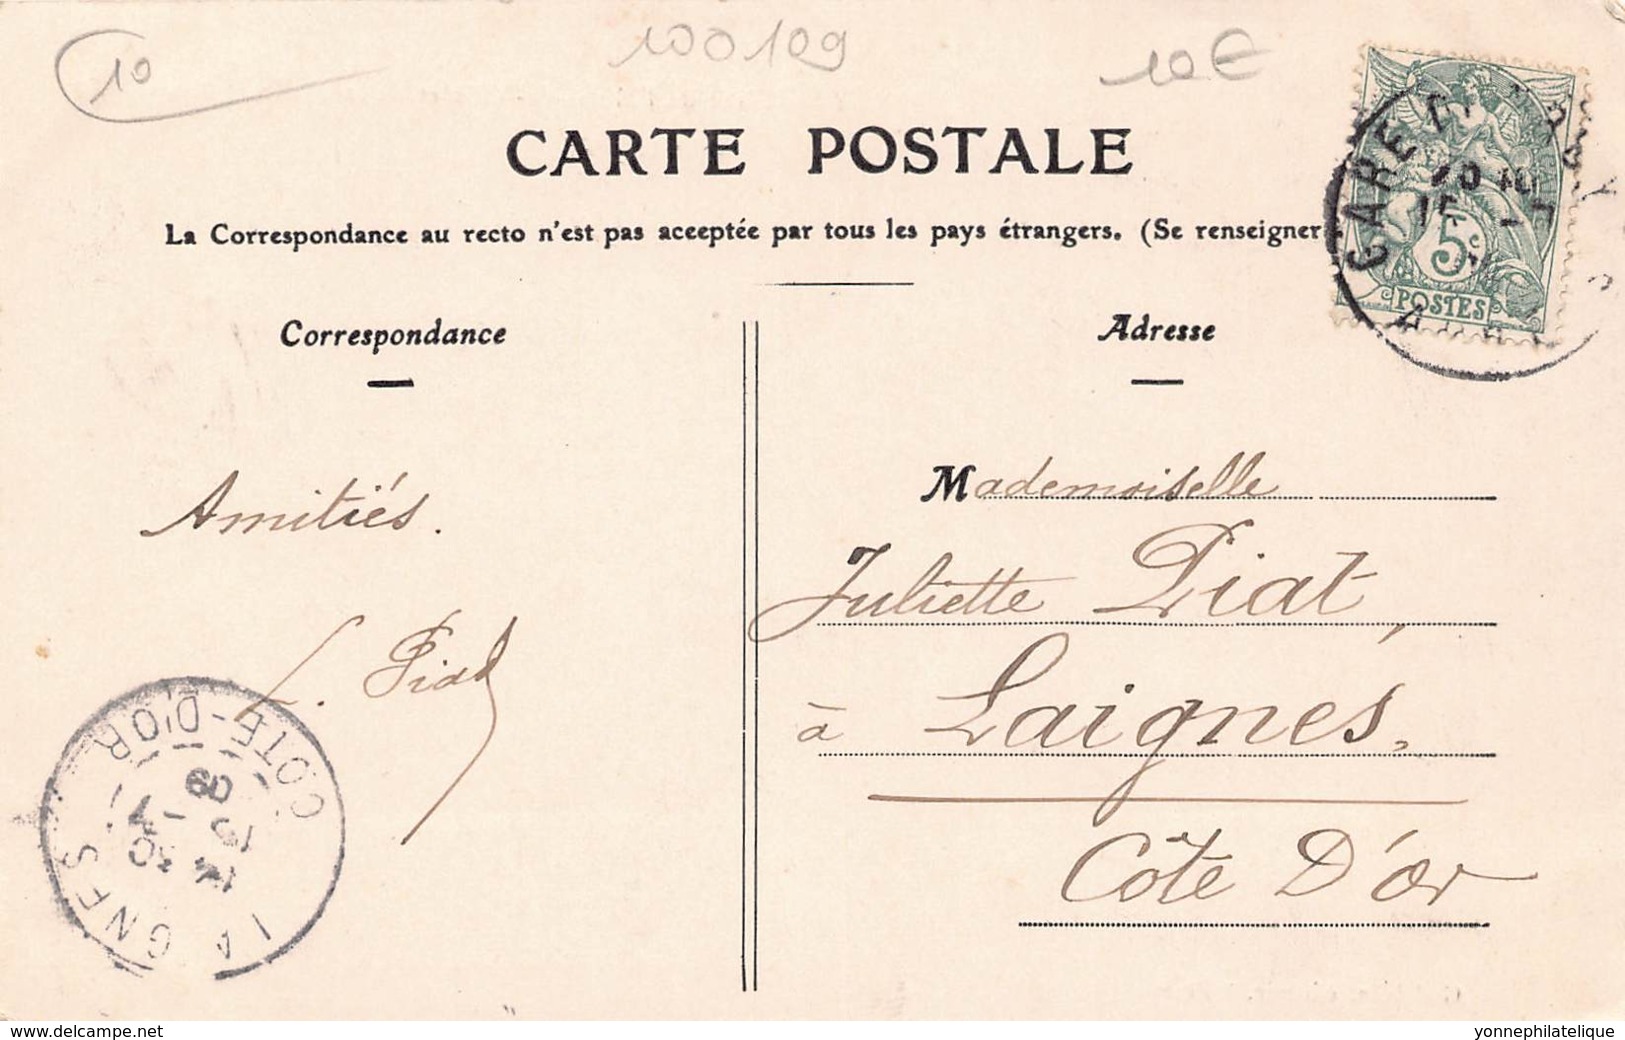 10
100109
10€
CARTE POSTALE
La Correspondance au recto n'est pas acceptée par tous les pays étrangers. (Se renseigner
GARE
5c
POSTES
Correspondance
Adresse
Amitiés.
L. Piat
Mademoiselle
Juliette Piat,
à Laignes,
Côte D'or
LAIGNES
COTE-D'OR
09
30
www.delcampe.net
yonnephilatelique